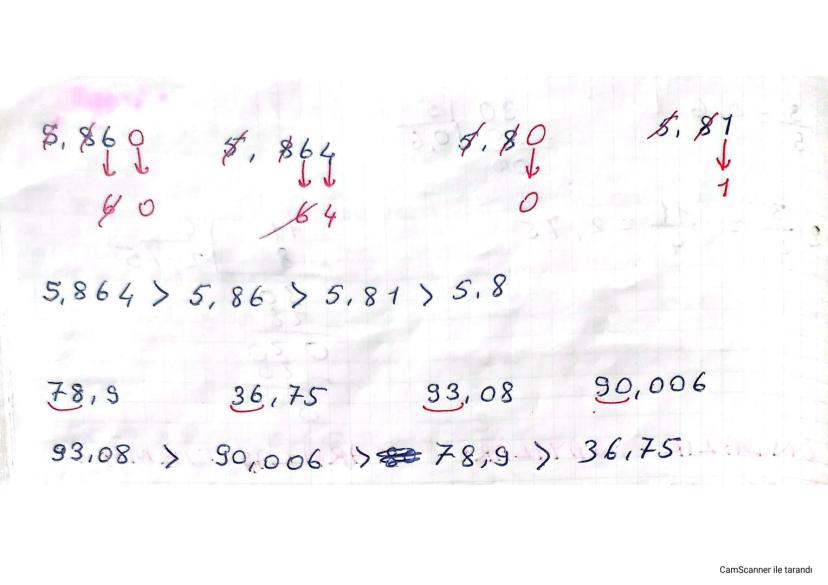 5,860 5,864 5,80 5,81
↓ ↓ ↓ ↓ ↓ ↓
6 0 6 4 0 1
5,864 > 5,86 > 5,81 > 5,8
78,9 36,75 93,08 90,006
93,08 > 90,006 > 78,9 > 36,75
CamScanner ile tarandı